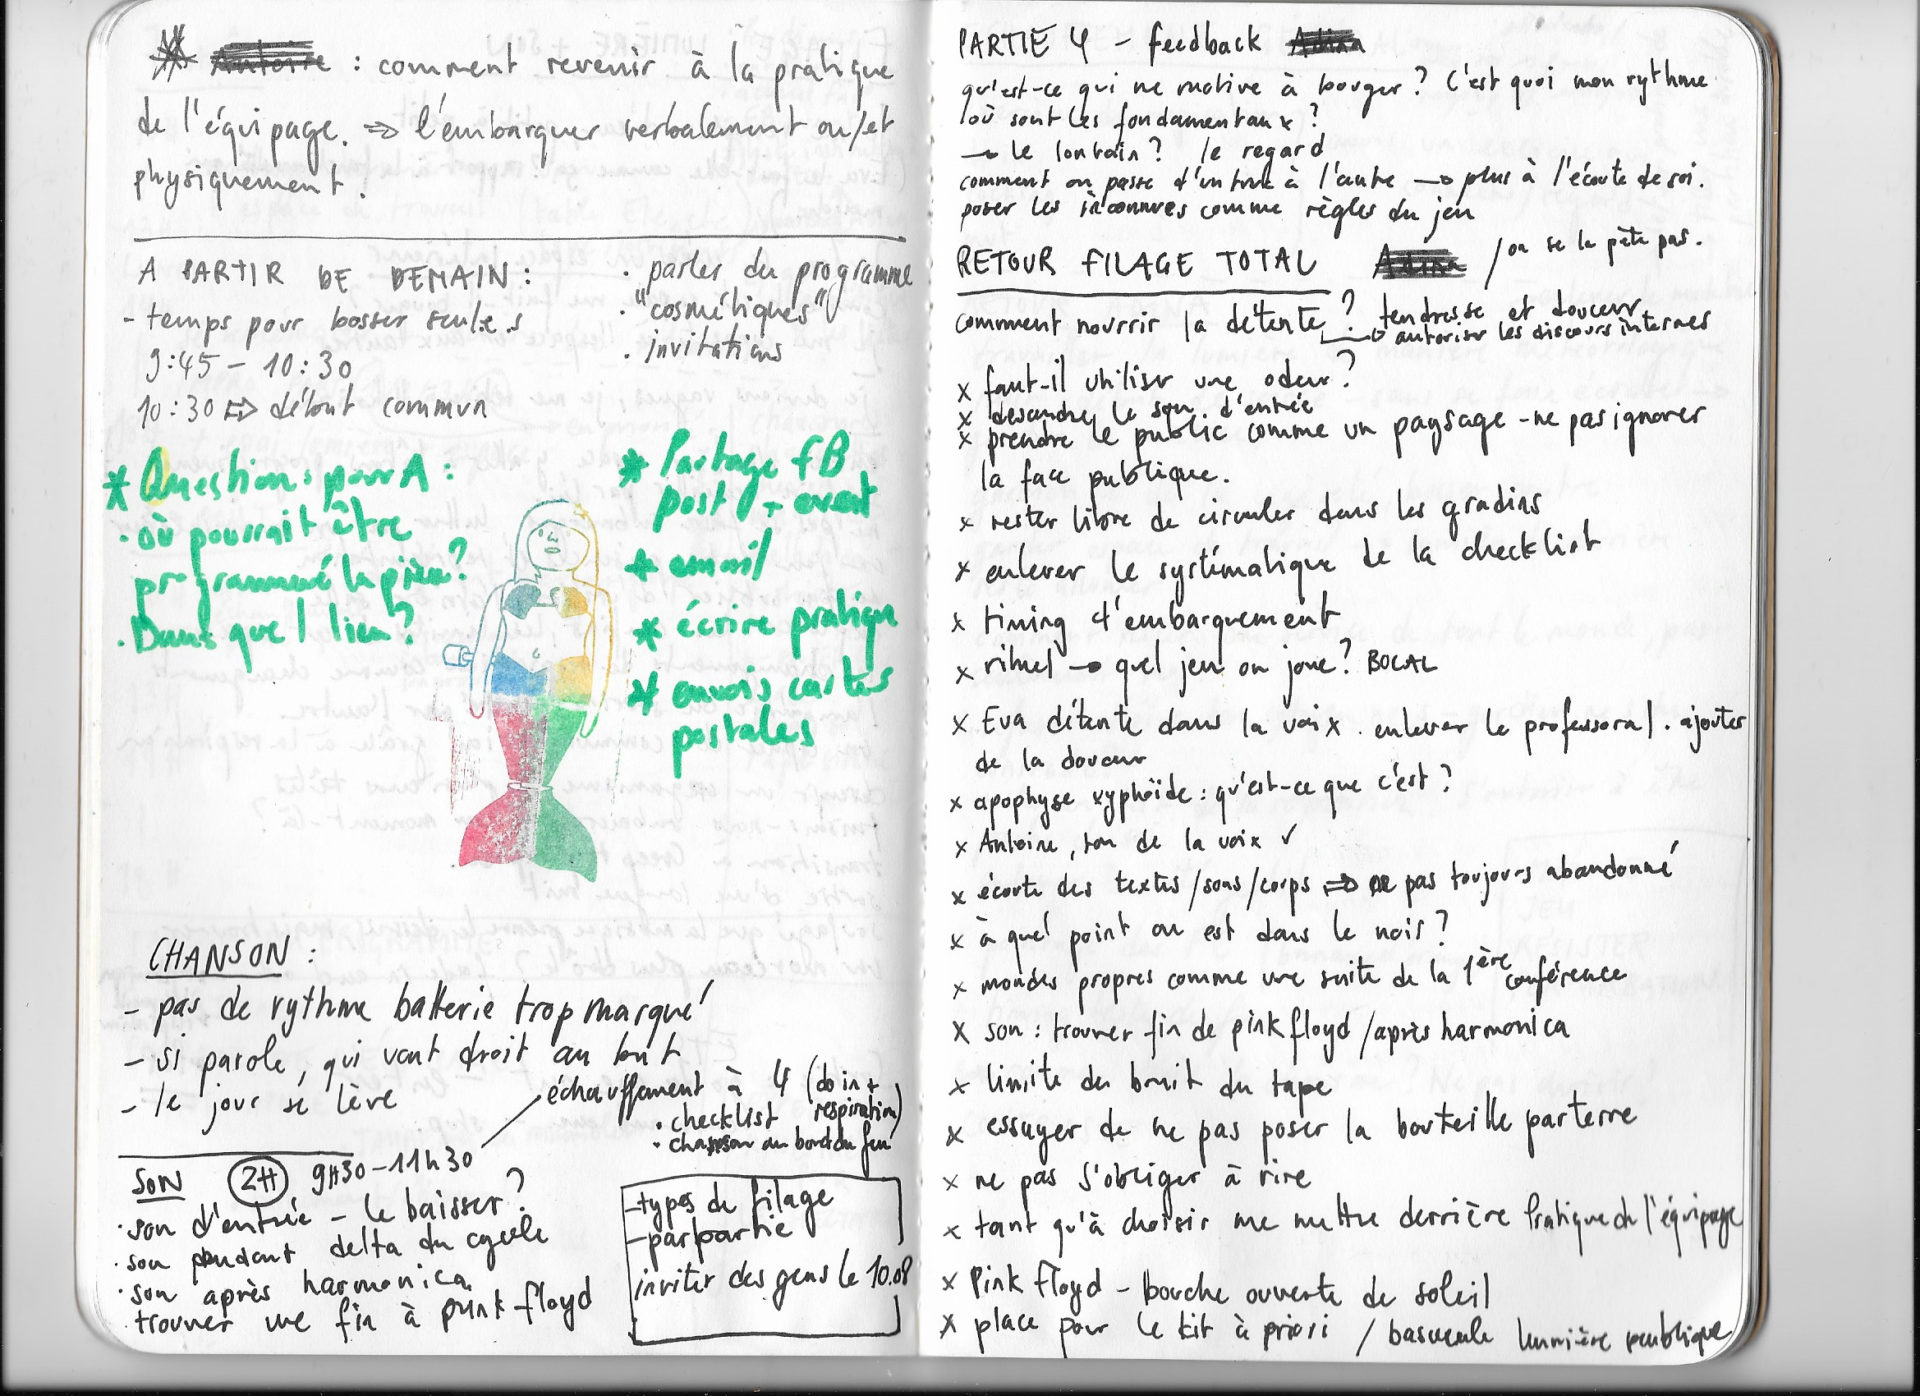 : comment revenir à la pratique
de l'équipage. ⇒ l'embarquer verbalement ou/et
physiquement.
A PARTIR DE DEMAIN :
- temps pour bosser seul.e.s
9:45 - 10:30
10:30 ⇒ début commun
· parler du programme
· "cosmétiques"
· invitations
* Questions pour A :
· où pourrait être
programmé la pièce?
· Dans quel lieu?
* Partage FB
post + event
* email
* écrire pratique
* envois cartes
postales
CHANSON :
- pas de rythme batterie trop marqué
- si parole, qui vont droit au but
- le jour se lève
échauffement à 4 (do in +
respiration)
· checklist
· chanson au bord du feu
SON 2H 9H30-11h30
· son d'entrée - le baisser?
· son pendant delta du cycle
· son après harmonica
trouver une fin à pink floyd
- types de filage
- par partie
inviter des gens le 10.08
PARTIE 4 - feedback
qu'est-ce qui me motive à bouger? C'est quoi mon rythme
où sont les fondamentaux?
→ le lointain? le regard
comment on passe d'un truc à l'autre → plus à l'écoute de soi.
poser les inconnues comme règles du jeu
RETOUR FILAGE TOTAL / on se la pète pas.
comment nourrir la détente? tendresse et douceur
↳ autoriser les discours internes
x faut-il utiliser une odeur?
x descendre le son d'entrée
x prendre le public comme un paysage - ne pas ignorer
la face publique.
x rester libre de circuler dans les gradins
x enlever le systématique de la checklist
x timing d'embarquement
x rituel → quel jeu on joue? BOCAL
x Eva détente dans la voix. enlever le professoral. ajouter
de la douceur
x apophyse xyphoïde : qu'est-ce que c'est?
x Antoine, ton de la voix ✓
x écoute des textes/sons/corps ⇒ pas toujours abandonné
x à quel point on est dans le noir?
x mondes propres comme une suite de la 1ère conférence
x son : trouver fin de pink floyd / après harmonica
x limite du bruit du tape
x essayer de ne pas poser la bouteille par terre
x ne pas s'obliger à rire
x tant qu'à choisir me mettre derrière Pratique de l'équipage
x Pink Floyd - bouche ouverte de soleil
x place pour le kit à priori / bascule lumière publique